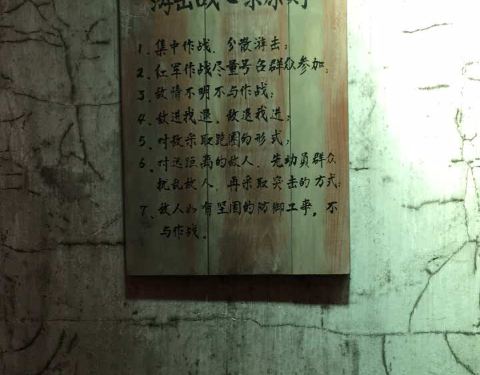 游击战七条原则
1、集中作战、分散游击；
2、红军作战尽量号召群众参加；
3、敌情不明不与作战；
4、敌进我退、敌退我进；
5、对敌采取跑圈的形式；
6、对远距离的敌人、先动员群众
扰乱敌人、再采取突击的方式；
7、敌人如有坚固的防御工事，不
与作战。